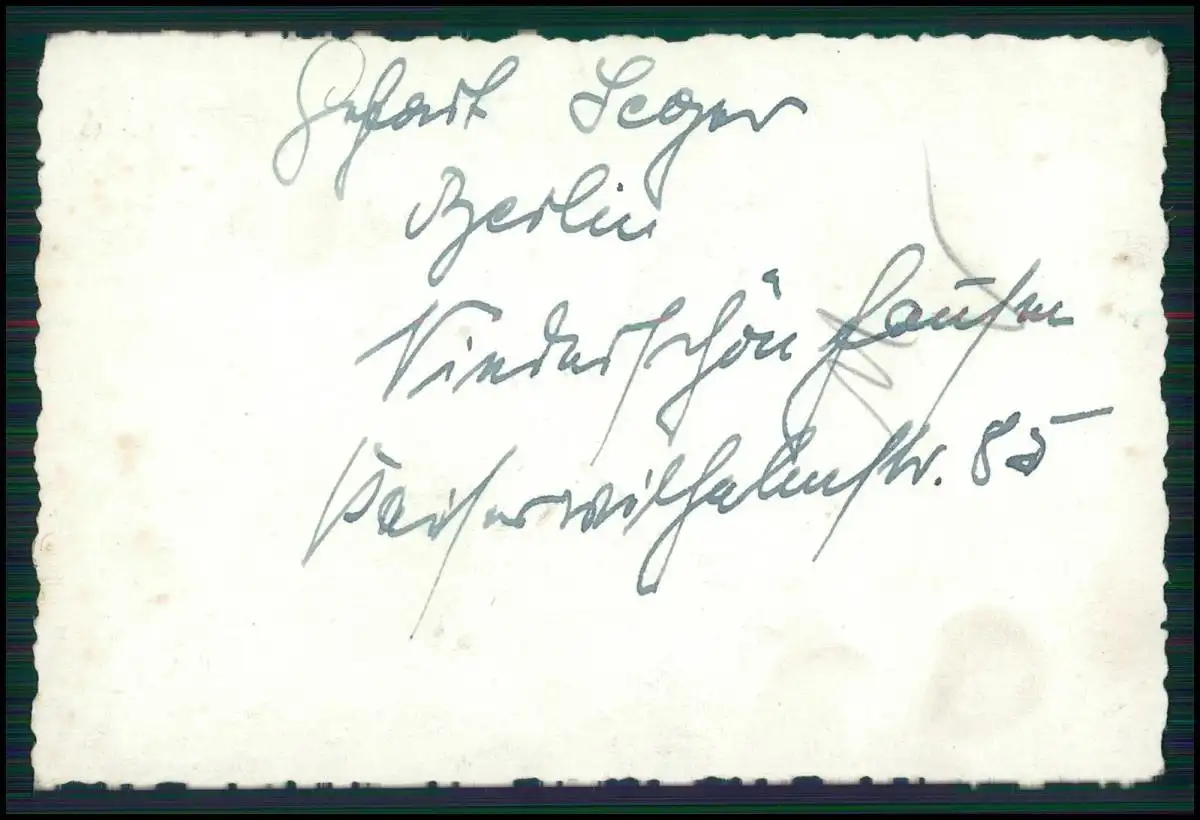 Gehart Seger
Berlin
Niederschönhausen
Kaiserwilhelmstr. 85